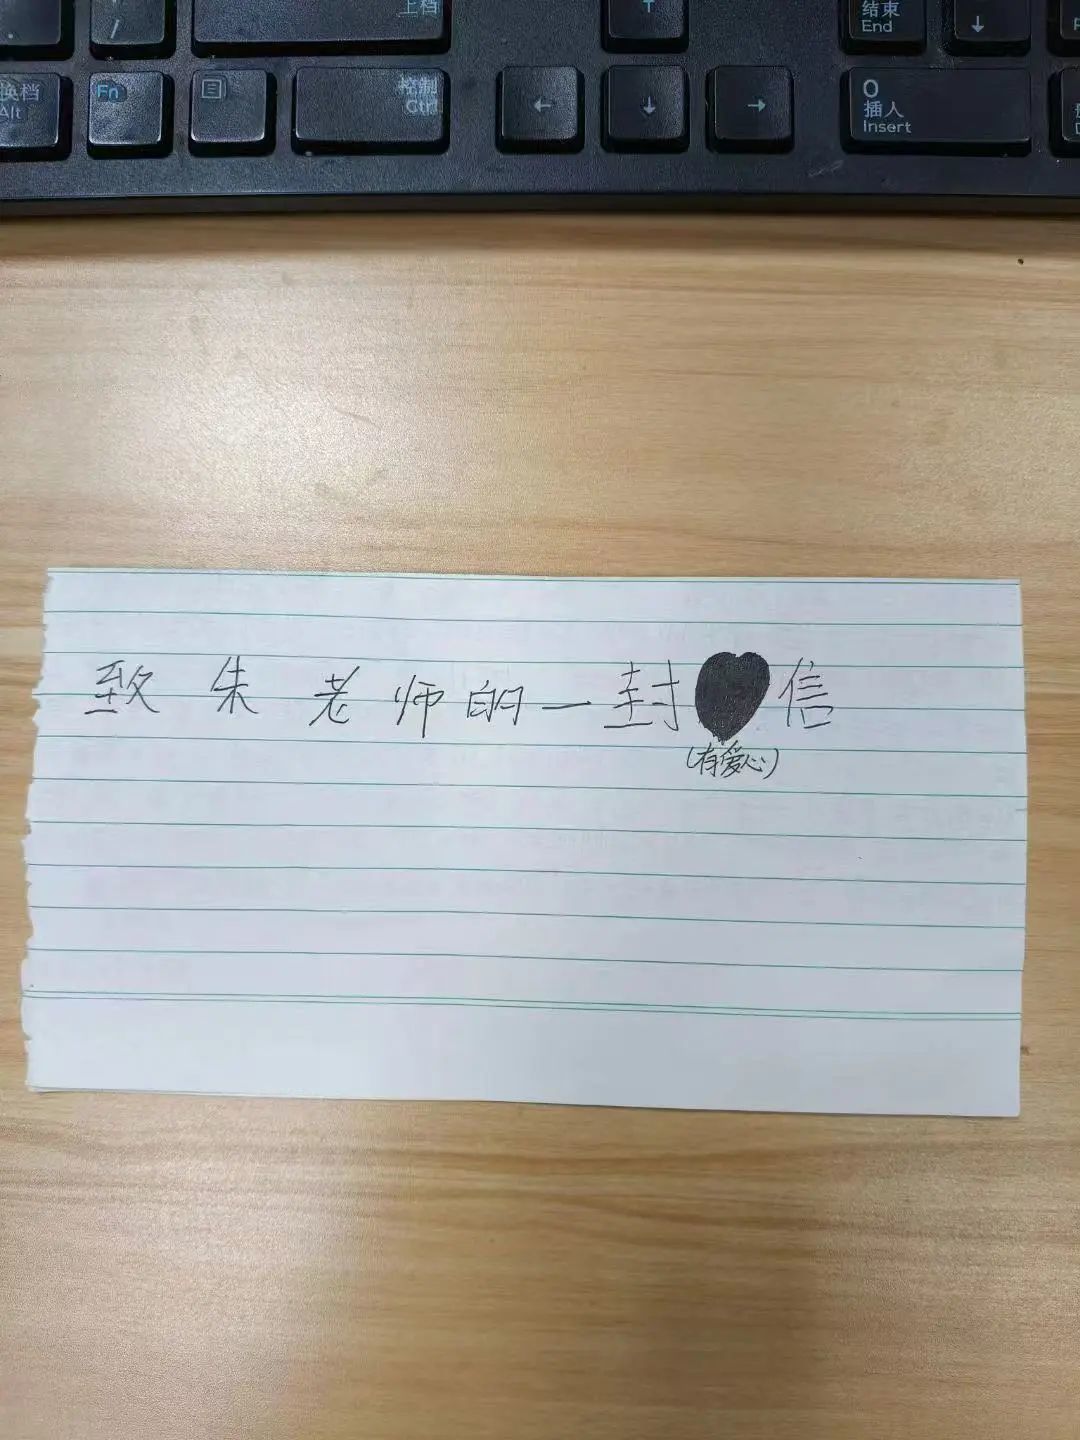 上档
结束
End
换档
Alt
Fn
控制
Ctrl
0
插入
Insert
致朱老师的一封♥信
(有爱心)